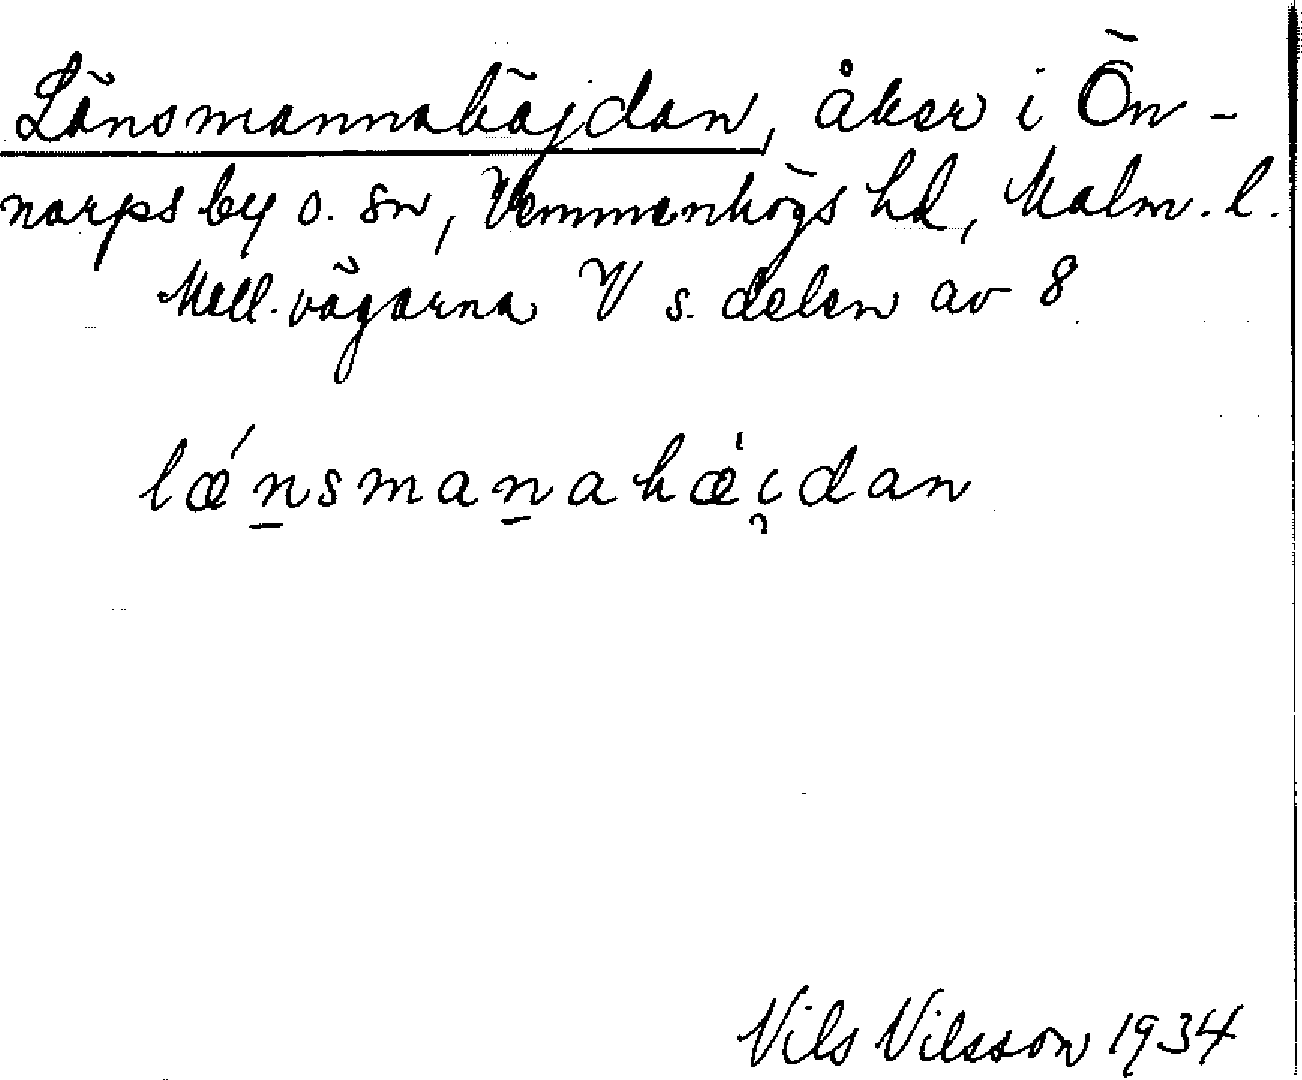 Länsmannahöjdan, åker i Ön-
narps by o. sn, Vemmenhögs hd, Malm. l.
Mell. vägarna V s. delen av 8
lǽn̠sman̠ahæ̍i̯dan
Nils Nilsson 1934